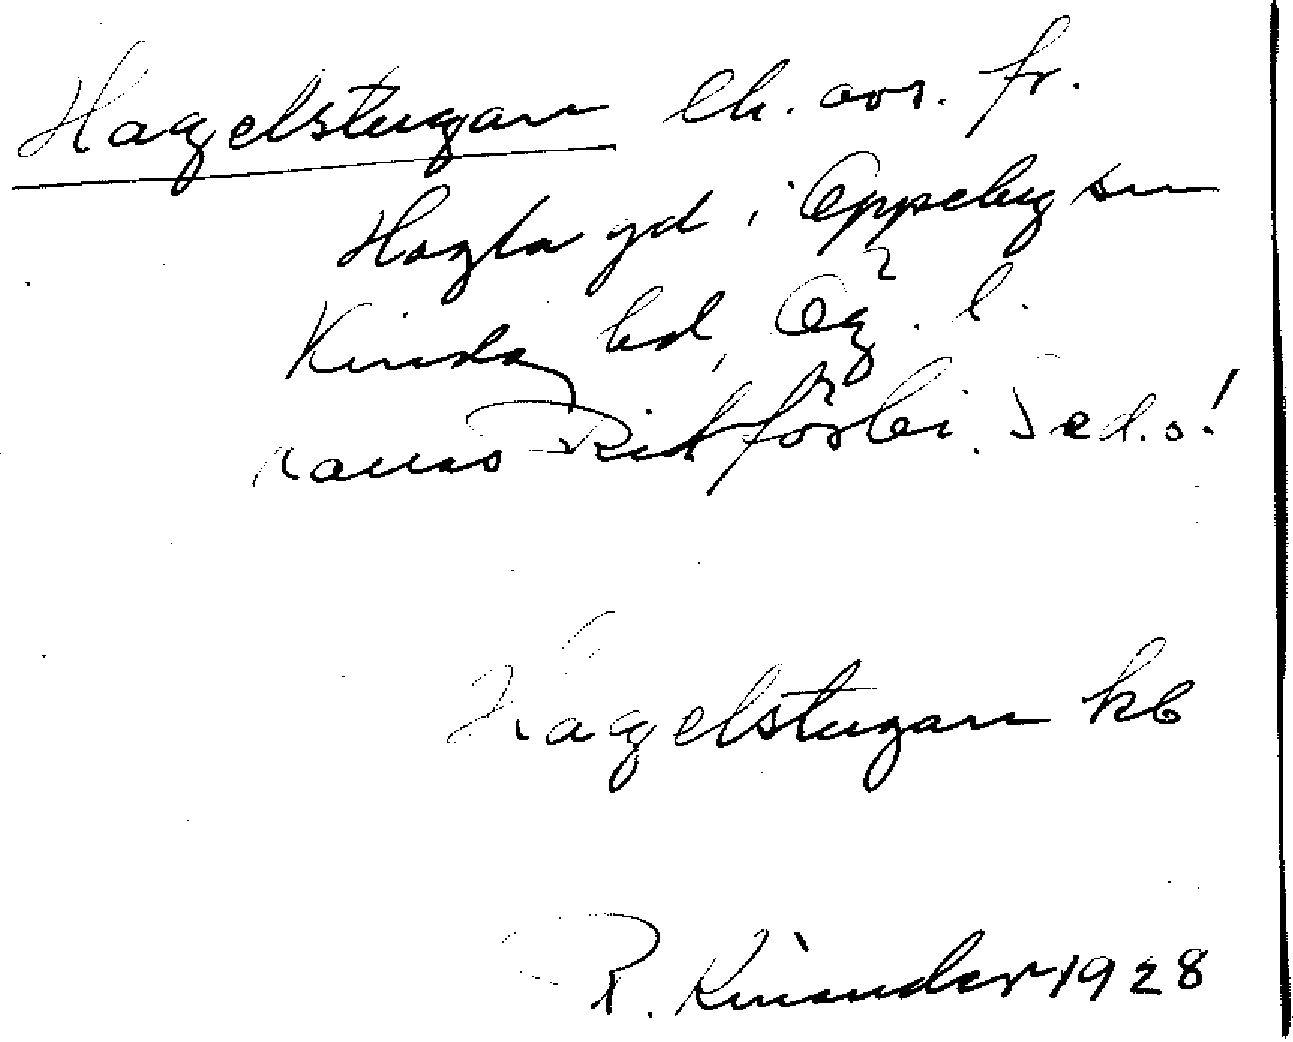 Hagelstugan lh. avs. fr.
Hagla gd i Oppeby sn
Kinda hd, Ög. l.
kallas Ridförbi. Se d.o!
Hagelstugan kb
R. Kinander 1928